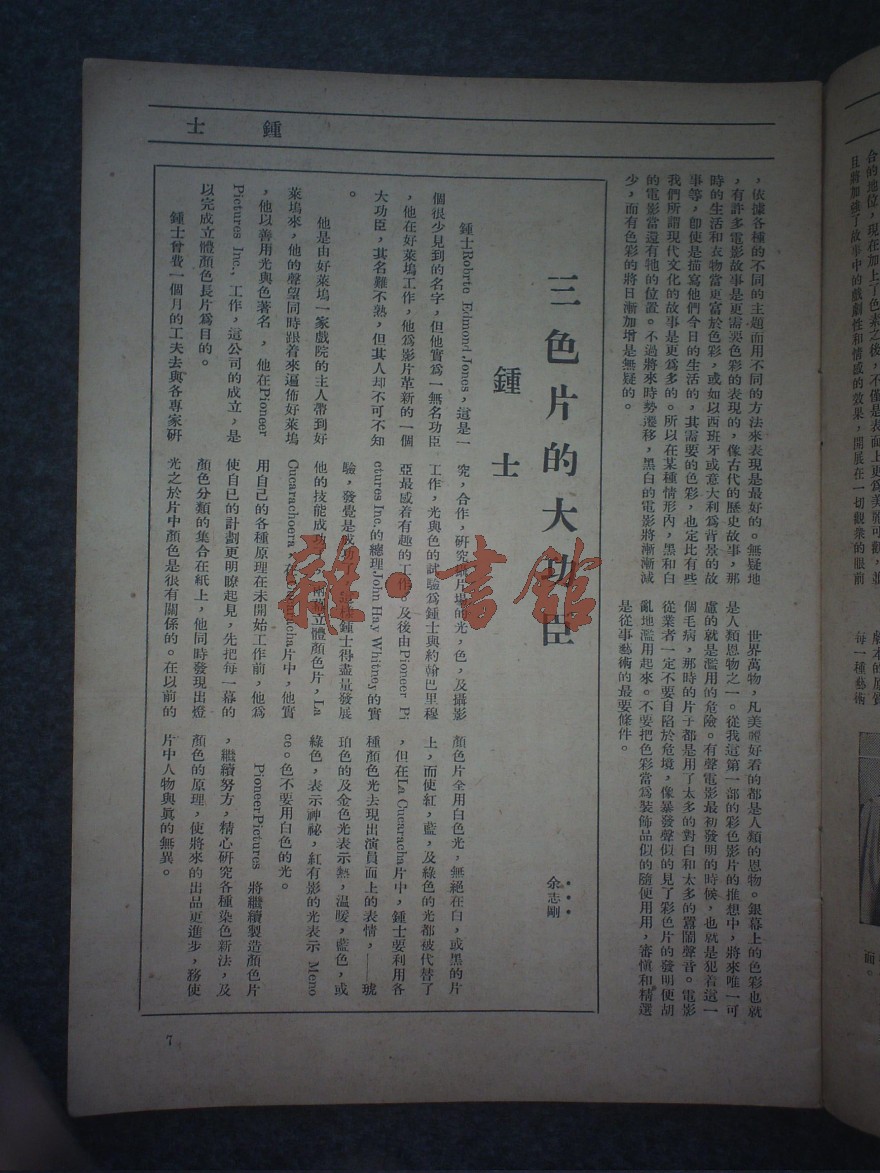 鍾士
，依據各種的不同的主題而用不同的方法來表現是最好的。無疑地
，有許多電影故事是更需要色彩的表現的，像古代的歷史故事，那
時的生活和衣物當更富於色彩，或如以西班牙或意大利爲背景的故
事等，卽使是描寫他們今日的生活的，其需要的色彩，也定比有些
我們所謂現代文化的故事是更爲多的。所以在某種情形內，黑和白
的電影當還有牠的位置。不過將來時勢遷移，黑白的電影將漸漸減
少，而有色彩的將日漸加增是無疑的。
世界萬物，凡美麗好看的都是人類的恩物。銀幕上的色彩也就
是人類恩物之一。從我這第一部的彩色影片的推想中，將來唯一可
慮的就是濫用的危險。有聲電影最初發明的時候，也就是犯着這一
個毛病，那時的片子都是用了太多的對白和太多的囂鬧聲音。電影
從業者一定不要自陷於危境，像暴發聲似的見了彩色片的發明便胡
亂地濫用起來。不要把色彩當爲裝飾品似的隨便用用，審愼和精選
是從事藝術的最要條件。
三色片的大功臣
鍾士
余志剛
鍾士Robrto Edmond Jones，這是一
個很少見到的名字，但他實爲一無名功臣
，他在好萊塢工作，他爲影片革新的一個
大功臣，其名雖不熟，但其人却不可不知
。
他是由好萊塢一家戲院的主人帶到好
萊塢來，他的聲望同時跟着來遍佈好萊塢
，他以善用光與色著名，他在Pioneer
Pictures Inc.，工作，這公司的成立，是
以完成立體顏色長片爲目的。
鍾士曾費一個月的工夫去與各專家研
究，合作，研究影片場的光，色，及攝影
工作，光與色的試驗爲鍾士與約翰巴里穆
亞最感着有趣的工作。及後由Pioneer Pi
ctures Inc.的總理John Hay Whitney的實
驗，發覺是成功，鍾士得盡量發展
他的技能成功立體顏色片，La
Cucarachoera，在Cucaracha片中，他實
用自己的各種原理在未開始工作前，他爲
使自已的計劃更明瞭起見，先把每一幕的
顏色分類的集合在紙上，他同時發現出燈
光之於片中顏色是很有關係的。在以前的
顏色片全用白色光，無絕在白，或黑的片
上，而使紅，藍，及綠色的光都被代替了
，但在La Cucaracha片中，鍾士要利用各
種顏色光去現出演員面上的表情，——琥
珀色的及金色光表示熱，温暖，藍色，或
綠色，表示神祕，紅有影的光表示 Meno
ce。色不要用白色的光。
PioneerPictures 將繼續製造顏色片
，繼續努方，精心研究各種染色新法，及
顏色的原理，使將來的出品更進步，務使
片中人物與眞的無異。
7
合的地位，現在加上了色素之後，不僅是表面上更爲美麗可觀，並
且將加強了故事中的戲劇性和情感的效果，開展在一切觀衆的眼前
每一種藝術
面。
雜·書館